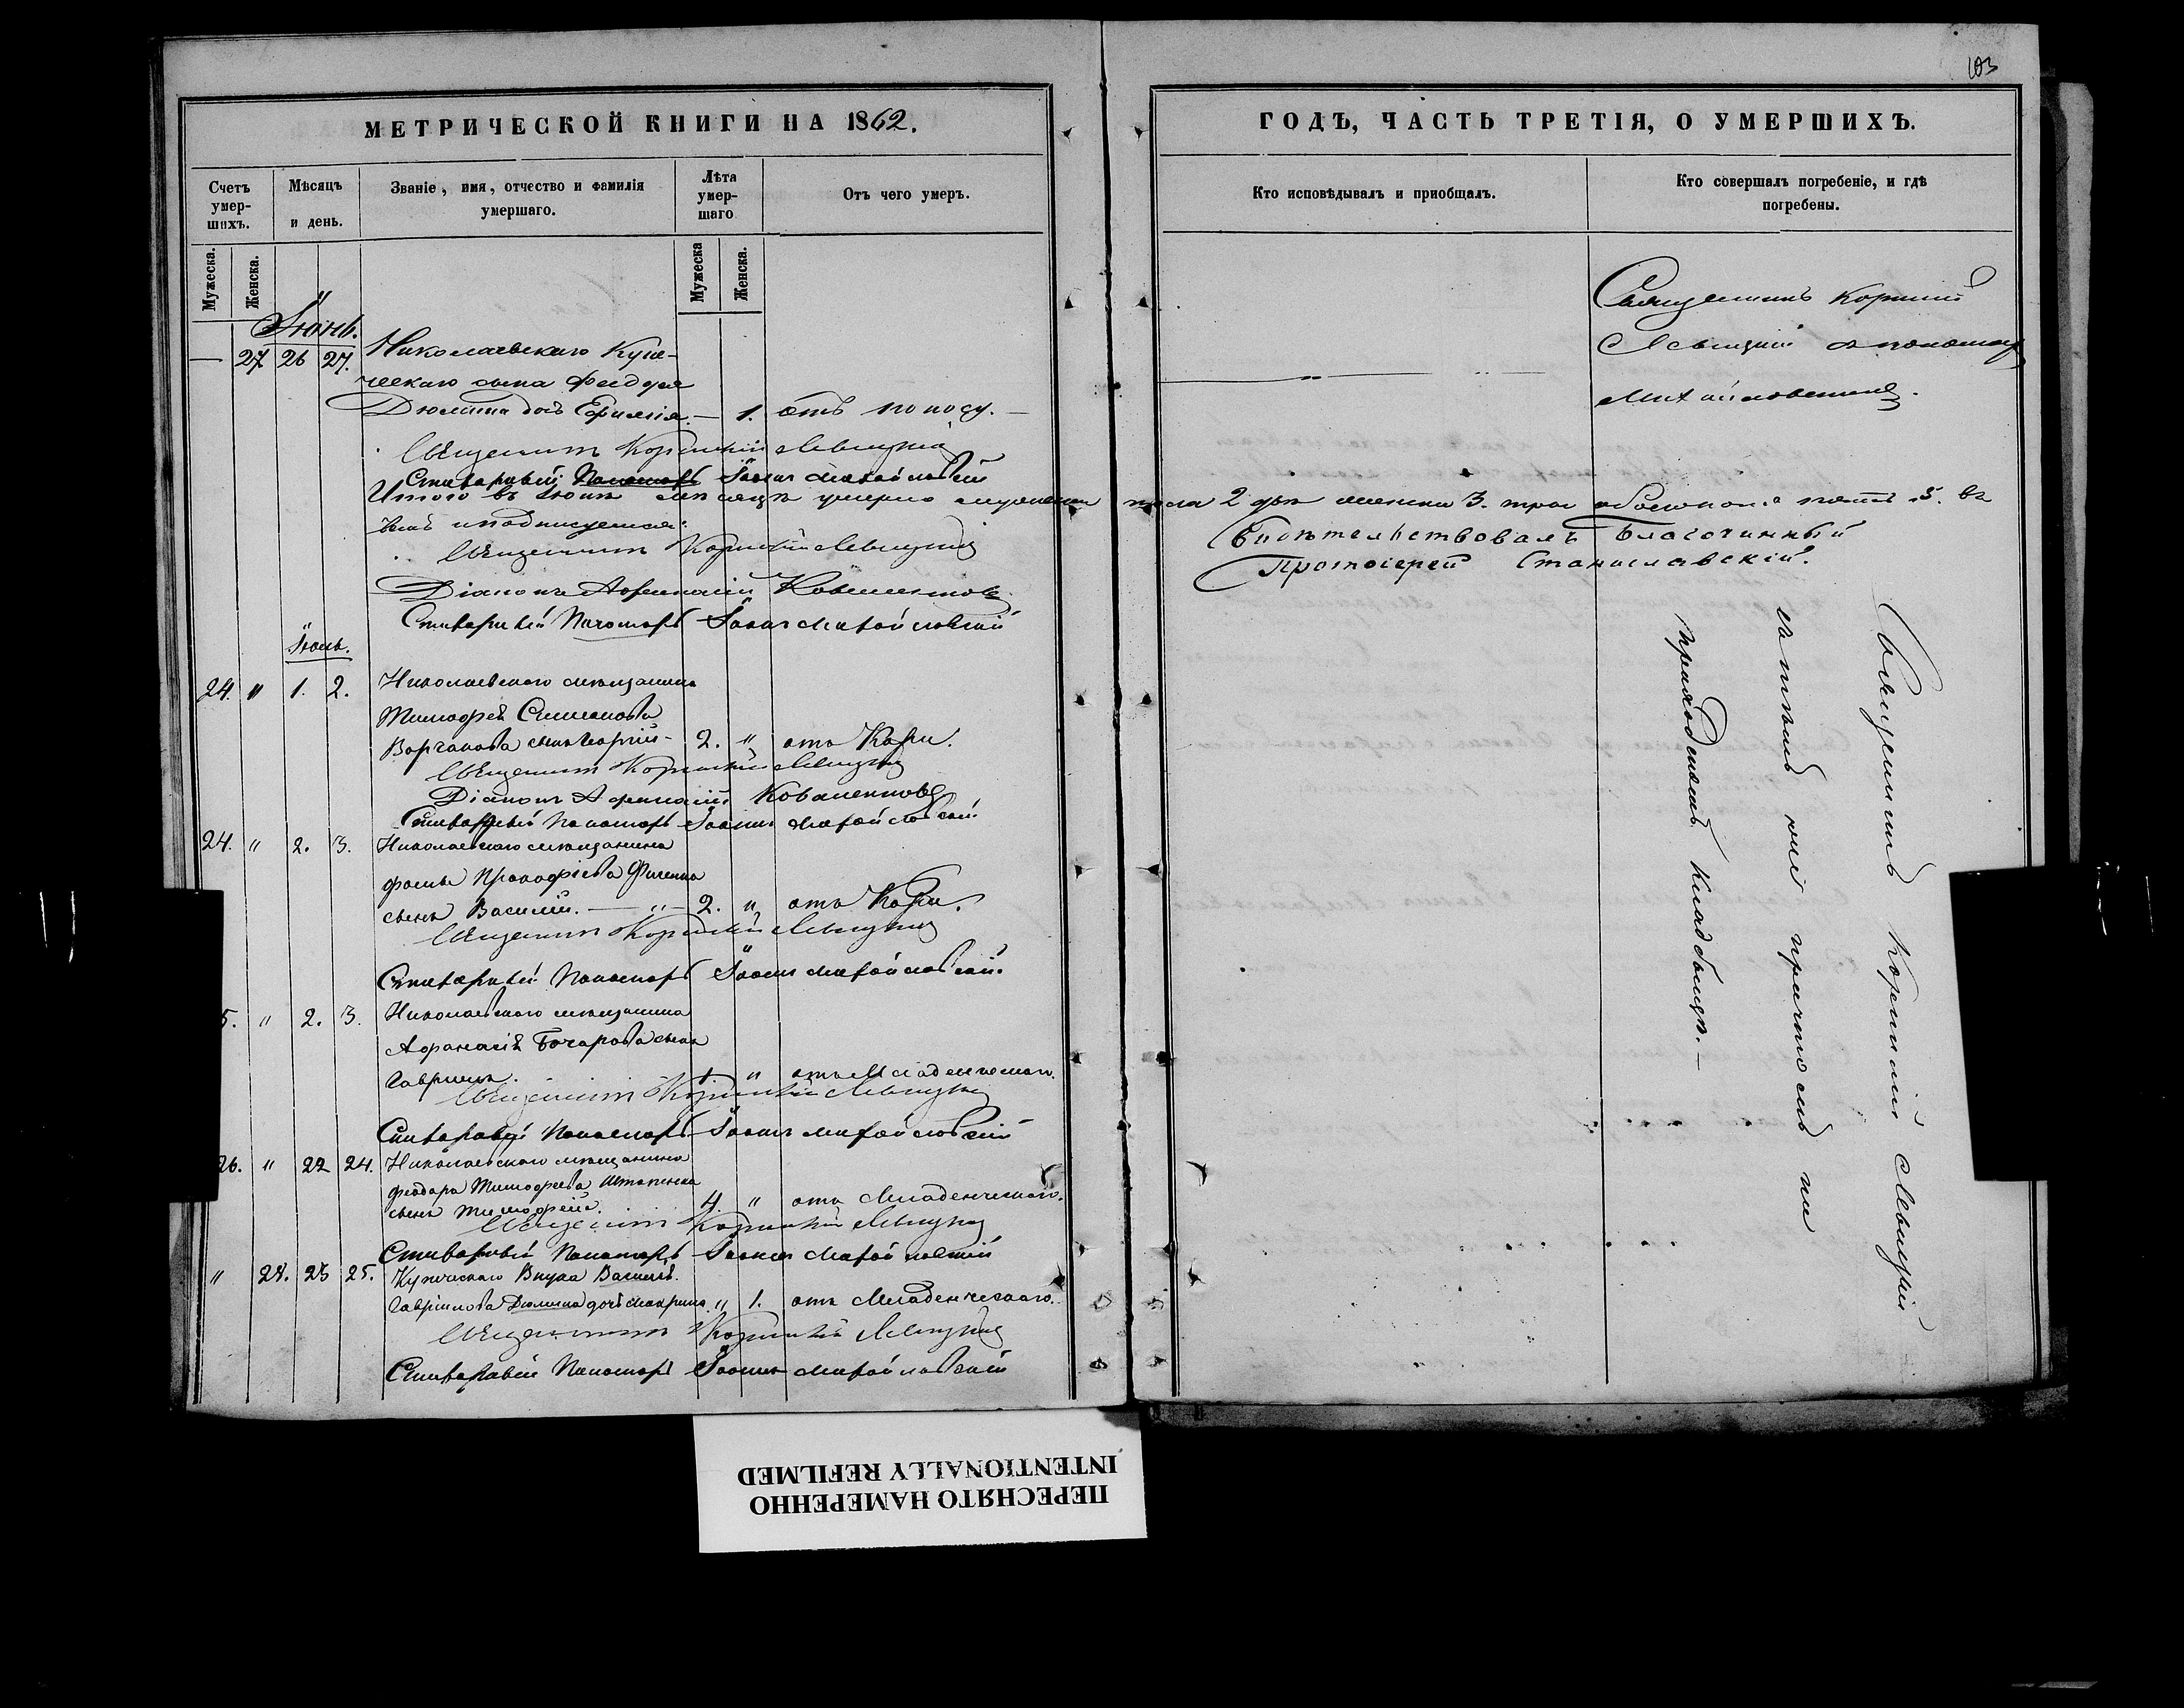 103
МЕТРИЧЕСКОЙ КНИГИ НА 1862.
Счетъ умер-шихъ.
Мѣсяцъ и день.
Званіе, имя, отчество и фамилія умершаго.
Лѣта умер-шаго
Отъ чего умеръ.
Мужеска.
Женска.
Мужеска
Женска.
Іюнь.
— 27 26 27. Николаевскаго Купе-
ческаго сына Феодора
Дюмина дочь Ефимія. — 1. отъ поносу. —
Священникъ Корнилій Левицкій
Стихарный Пономарь Іоаннъ Михайловскій
Итого въ Іюнѣ мѣсяцѣ умерло мужеска пола 2 два женска 3. три обоего пола пять 5. въ
чемъ и подписуемся:
Священникъ Корнилій Левицкій
Діаконъ Афанасій
Стихарный Пономарь Іоаннъ Михайловскій
Іюль.
24. " 1. 2. Николаевскаго мѣщанина
Тимофея Симонова
сынъ Георгій — 2. " отъ Кори.
Священникъ Корнилій Левицкій
Діаконъ Афанасій
Стихарный Пономарь Іоаннъ Михайловскій
24. " 2. 3. Николаевскаго мѣщанина
Фомы Прокофіева
сынъ Василій. — " — 2. " отъ Кори.
Священникъ Корнилій Левицкій
Стихарный Пономарь Іоаннъ Михайловскій
5. " 2. 3. Николаевскаго мѣщанина
Афанасія Бочарова сынъ
Гавріилъ. 1. " отъ Младенческаго.
Священникъ Корнилій Левицкій
Стихарный Пономарь Іоаннъ Михайловскій
26. " 22 24. Николаевскаго мѣщанина
Феодора Тимофеева
сынъ Тимофей. 4. " отъ Младенческаго.
Священникъ Корнилій Левицкій
Стихарный Пономарь Іоаннъ Михайловскій
" 28. 23 25. Купеческаго Внука Василія
Гавріилова Дюмина дочь Макрина. " 1. отъ Младенческаго.
Священникъ Корнилій Левицкій
Стихарный Пономарь Іоаннъ Михайловскій
ГОДЪ, ЧАСТЬ ТРЕТІЯ, О УМЕРШИХЪ.
Кто исповѣдывалъ и пріобщалъ.
Кто совершалъ погребеніе, и гдѣ погребены.
Священникъ Корнилій
Левицкій съ пономар
Михайловскимъ.
Свидѣтельствовалъ Благочинный
Протоіерей Станиславскій.
Священникъ Корнилій Левицкій
причтомъ на
приходскомъ кладбищѣ. —
ПЕРЕСНЯТО НАМЕРЕННО
INTENTIONALLY REFILMED